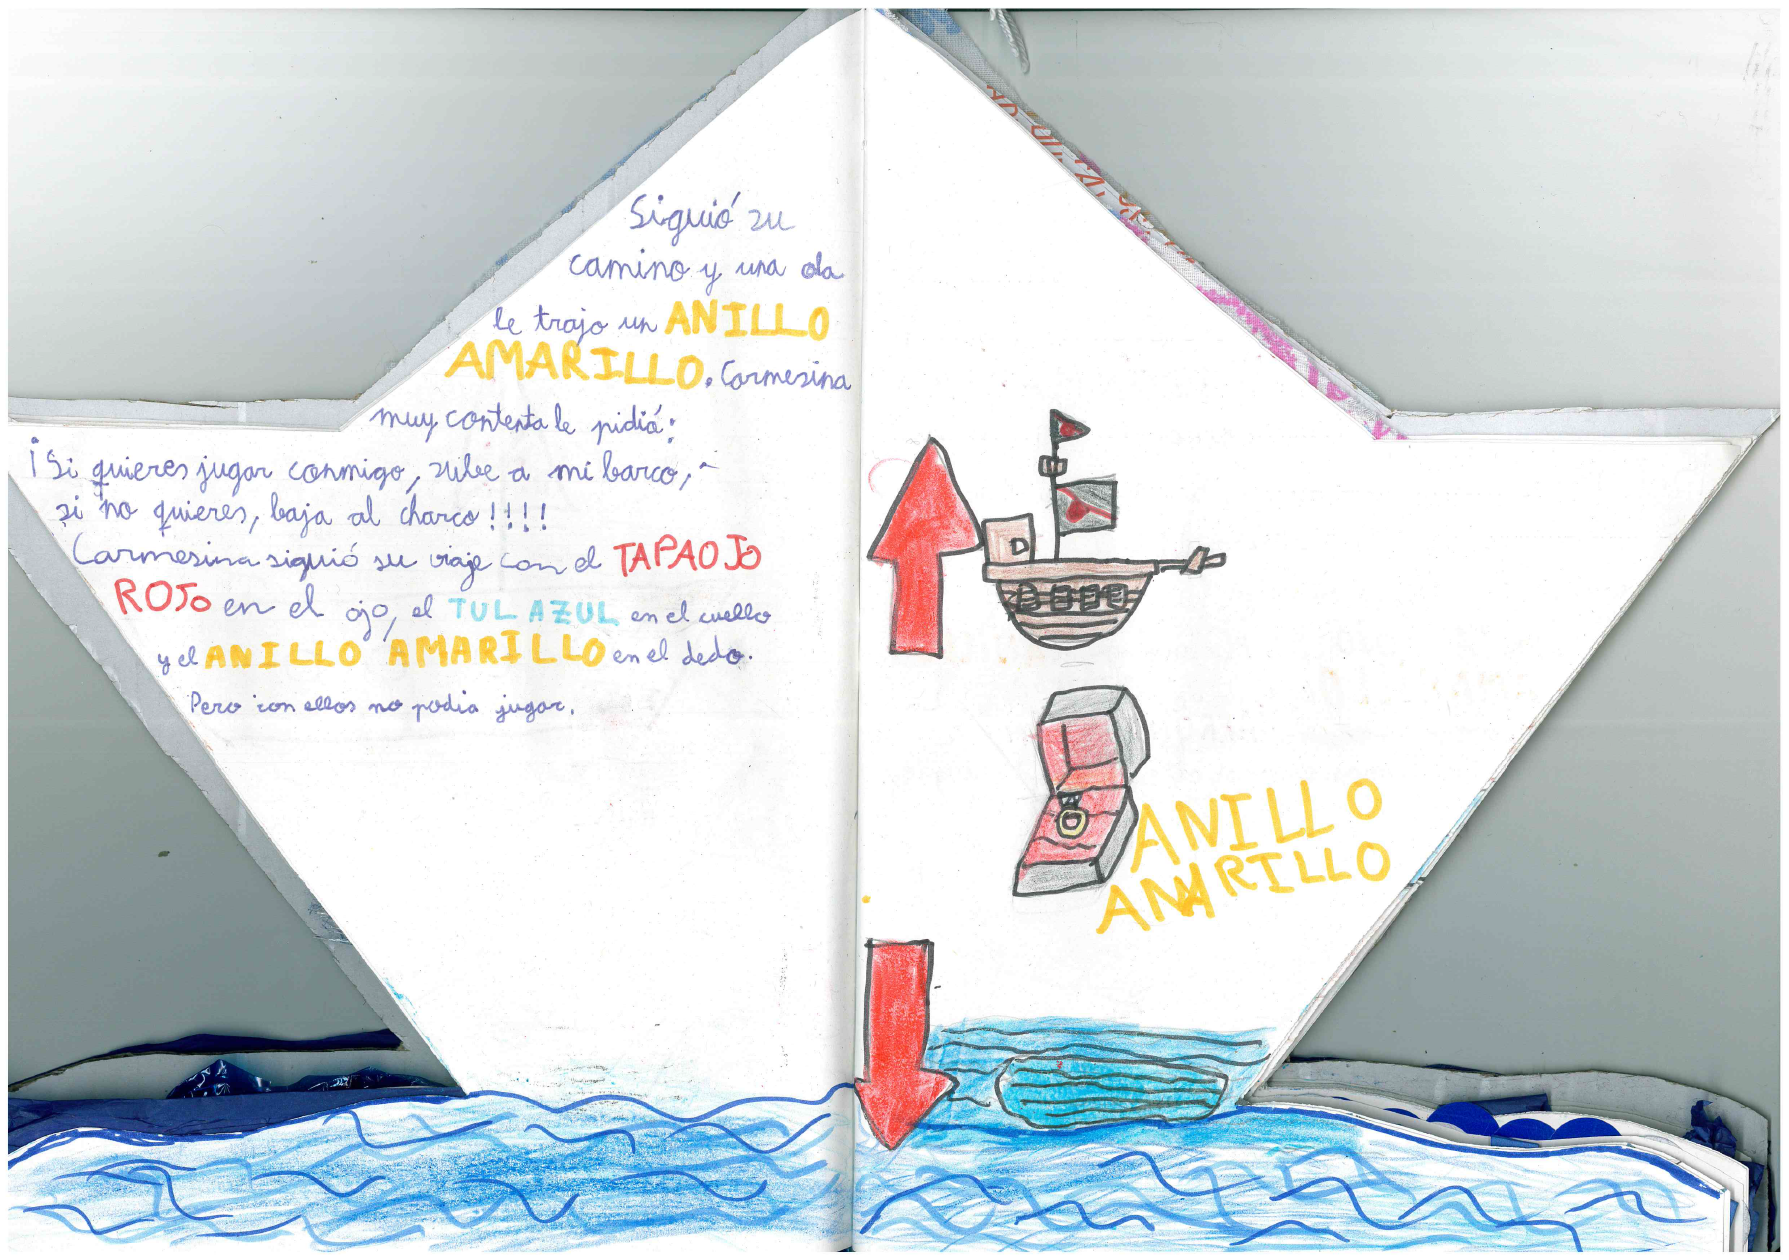 Siguió su
camino y una ola
le trajo un ANILLO
AMARILLO. Carmesina
muy contenta le pidió:
¡Si quieres jugar conmigo, sube a mi barco,
si no quieres, baja al charco!!!!
Carmesina siguió su viaje con el TAPAOJO
ROJO en el ojo, el TUL AZUL en el cuello
y el ANILLO AMARILLO en el dedo.
Pero con ellos no podía jugar.
ANILLO
AMARILLO